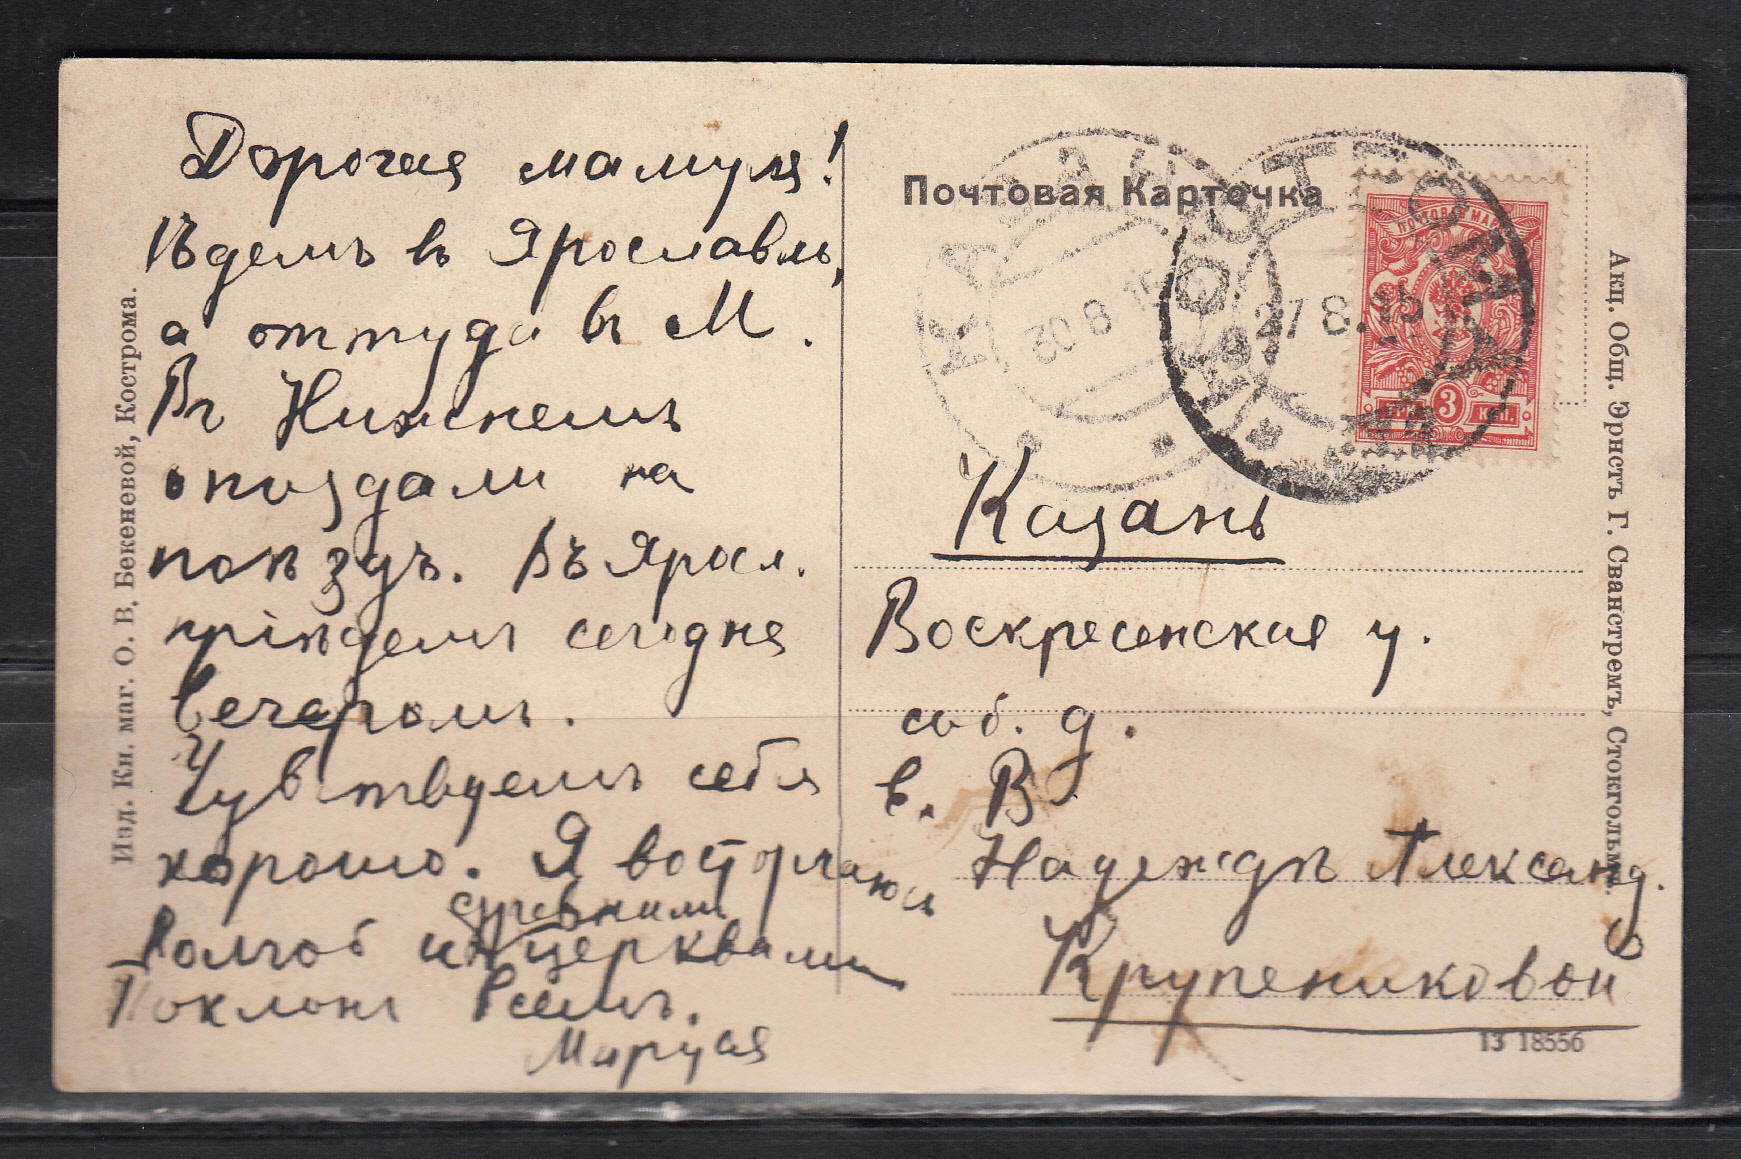 Дорогая мамуля!
Ѣдемъ въ Ярославль,
а оттуда въ М.
Въ Нижнемъ
опоздали на
поѣздъ. Въ Яросл.
пріѣдемъ сегодня
вечеромъ.
Чувствуемъ себя
хорошо. Я восторгаюсь
древними
Волгой и церквами
Поклонъ всемъ.
Маруся
Почтовая Карточка
КАЗАНЬ
30 8 15
КОСТРОМА
27 8.15
ПОЧТОВАЯ МАРКА
ТРИ 3 КОП.
Казань
Воскресенская у.
соб. д.
Е. В
Надеждѣ Александ.
Крупениковой
13 18556
Изд. Кн. маг. О. В. Бекеневой, Кострома.
Акц. Общ. Эрнстъ Г. Сванстремъ, Стокгольмъ.